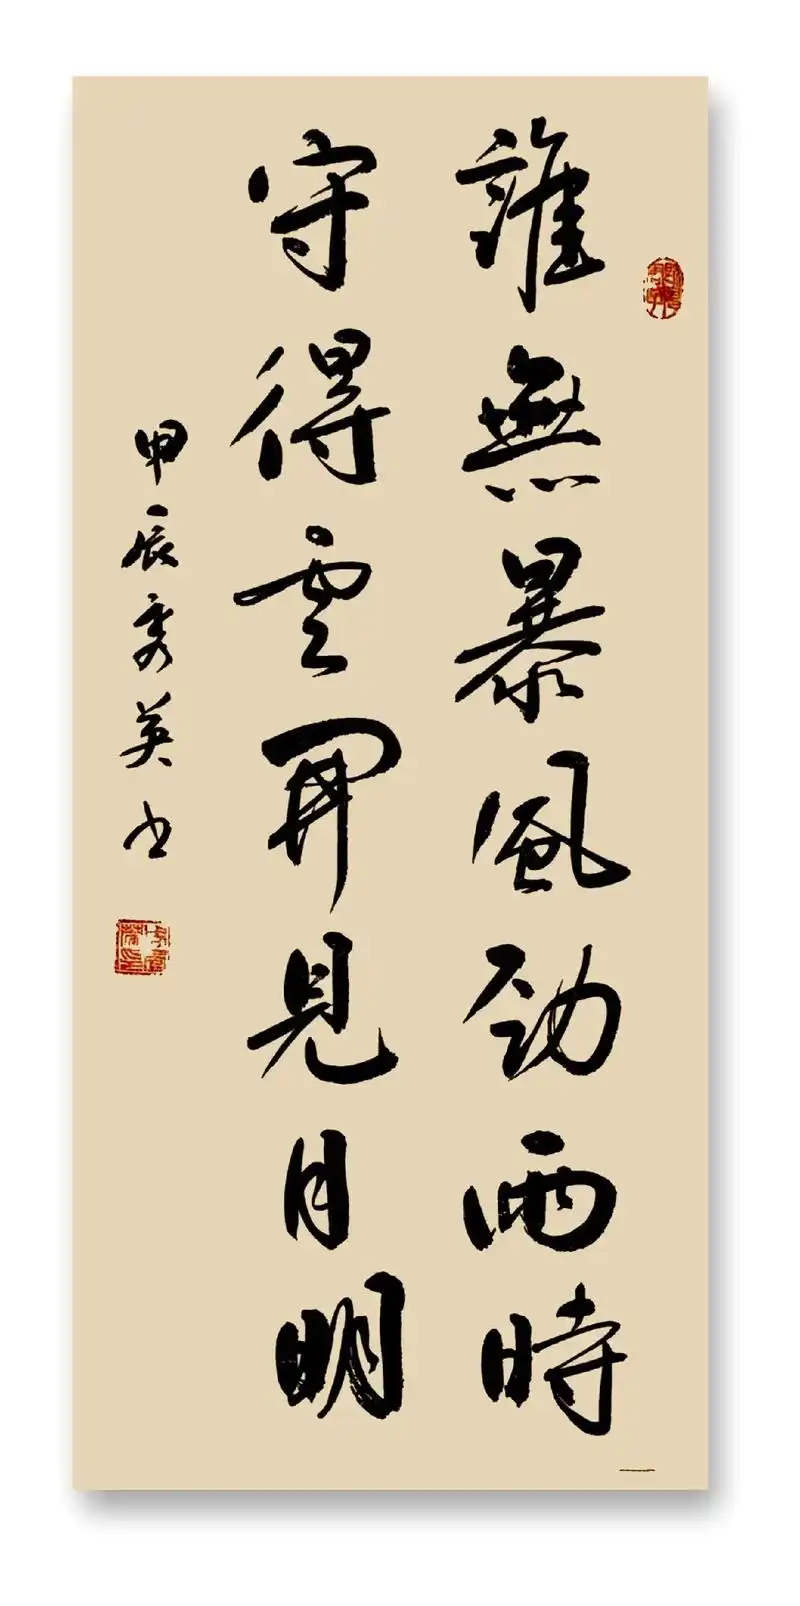 誰無暴風劲雨時
守得雲開見月明
甲辰秀英书